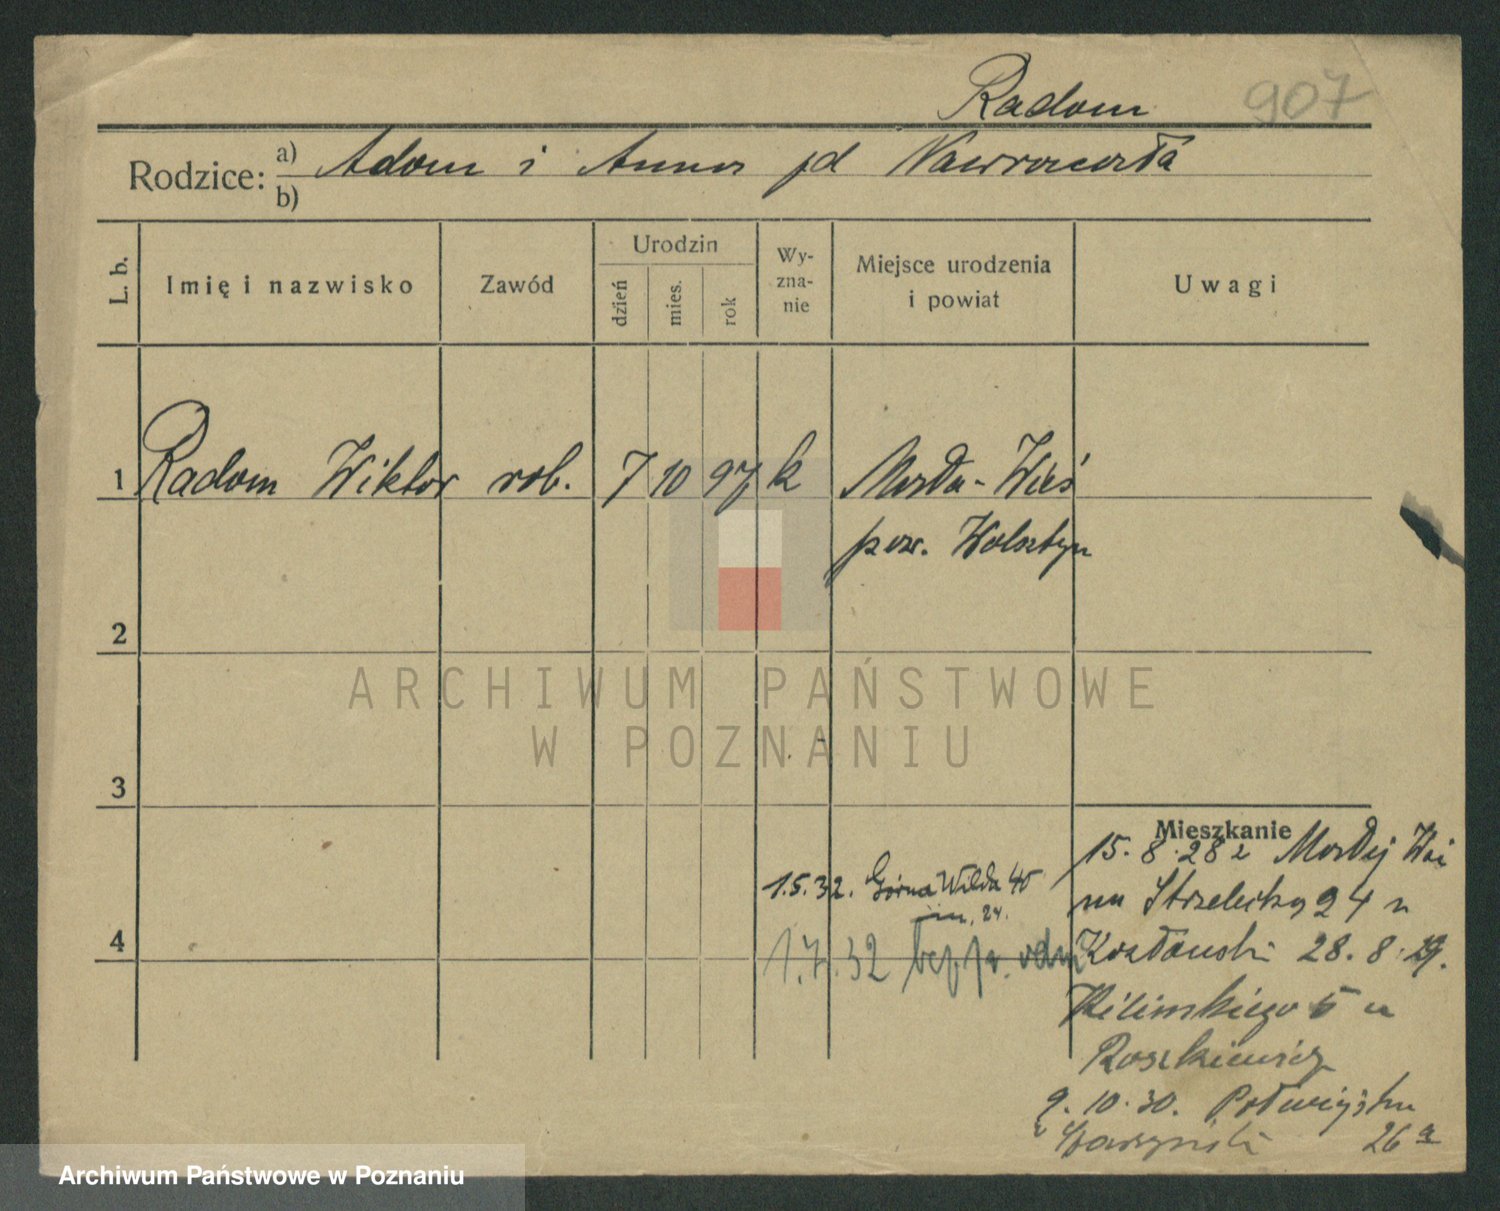 Radom 907
Rodzice: a) Adam i Anna jd
b)
L. b. Imię i nazwisko Zawód Urodzin dzień mies. rok Wy-zna-nie Miejsce urodzenia i powiat Uwagi
1 Radom Wiktor rob. 7 10 97 k Mała-Wieś
pow. Wolsztyn
2
ARCHIWUM PAŃSTWOWE
W POZNANIU
3
Mieszkanie
15. 8. 28 z Małej Wsi
1.5.32. Górna Wilda 45
m. 24.
na Strzelecką 24 u
4
1.7.32 28. 8. 29.
Kilińskiego 5 u
Roszkiewicz
9. 10. 30. Półwiejska
26 a
Archiwum Państwowe w Poznaniu